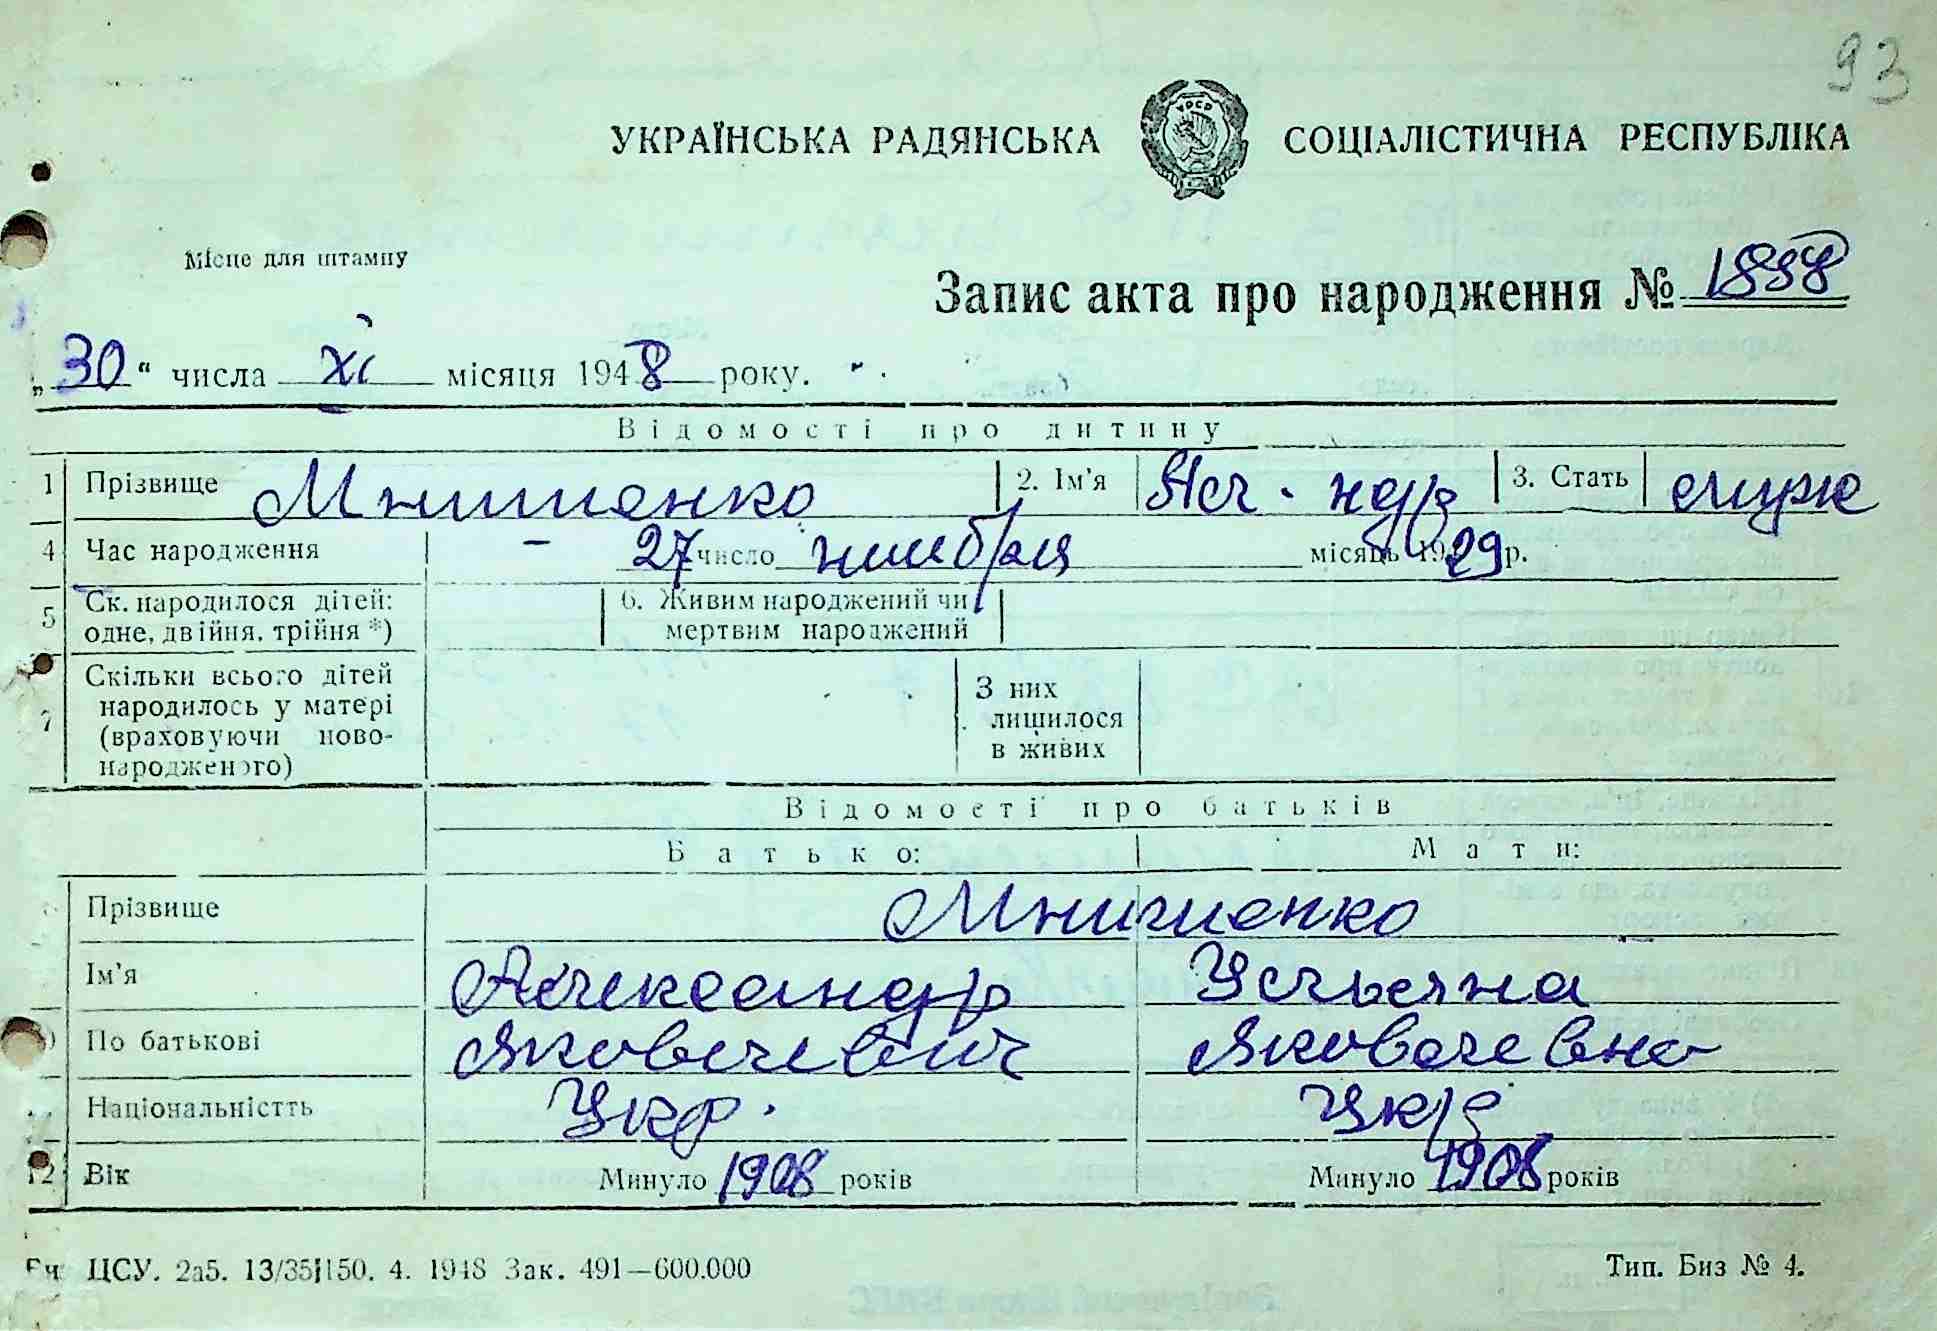 93
УКРАЇНСЬКА РАДЯНСЬКА СОЦІАЛІСТИЧНА РЕСПУБЛІКА
УРСР
Місце для штампу
Запис акта про народження №
„30“ числа XI місяця 1948 року.
Відомості про дитину
1 Прізвище 2. Ім'я 3. Стать
4 Час народження - 27 число ноября місяць 1929 р.
5 Ск. народилося дітей: одне, двійня, трійня *) 6. Живим народжений чи мертвим народжений
7 Скільки всього дітей народилось у матері (враховуючи новонародженого) З них лишилося в живих
Відомості про батьків
Батько: Мати:
Прізвище
Ім'я Александр Ульяна
По батькові Яковлевич Яковлевна
Національністть Укр. Укр
12 Вік Минуло 1908 років Минуло 1908 років
ЦСУ. 2а5. 13/35 150. 4. 1948 Зак. 491—600.000
Тип. Биз № 4.